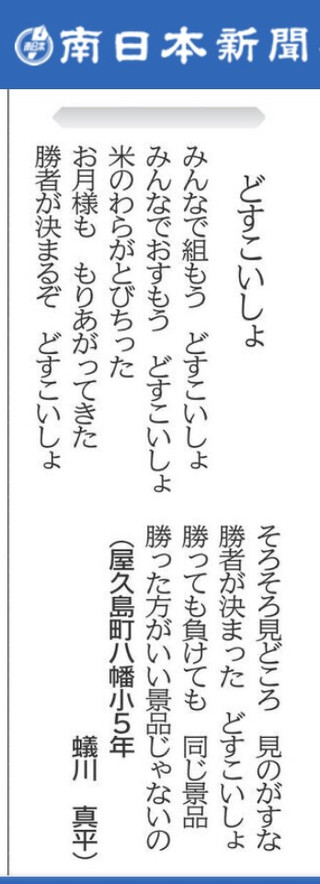 南日本新聞
どすこいしょ
みんなで組もう　どすこいしょ
みんなでおすもう　どすこいしょ
米のわらがとびちった
お月様も　もりあがってきた
勝者が決まるぞ　どすこいしょ
そろそろ見どころ　見のがすな
勝者が決まった　どすこいしょ
勝っても負けても　同じ景品
勝った方がいい景品じゃないの
（屋久島町八幡小５年
蟻川　真平）